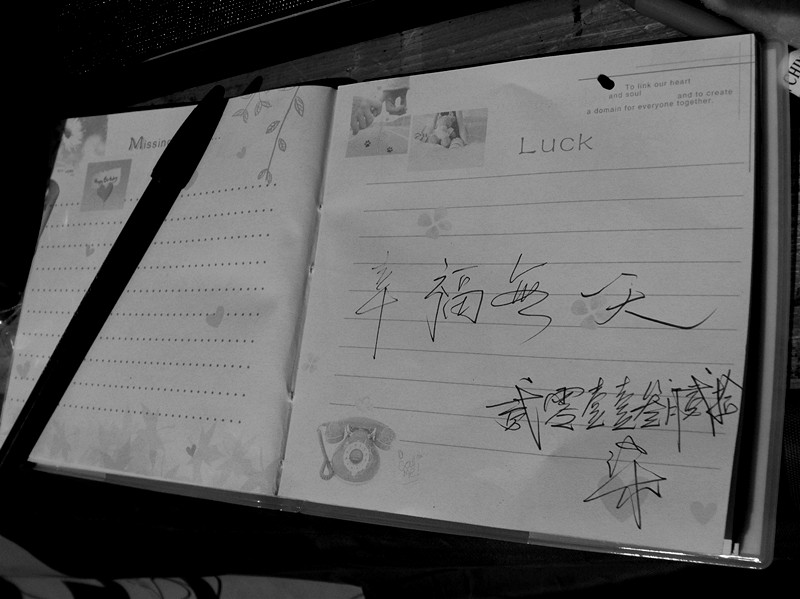 To link our heart
and soul and to create
a domain for everyone together
Missing
Luck
幸福每天
贰零壹壹叁月贰拾
柒